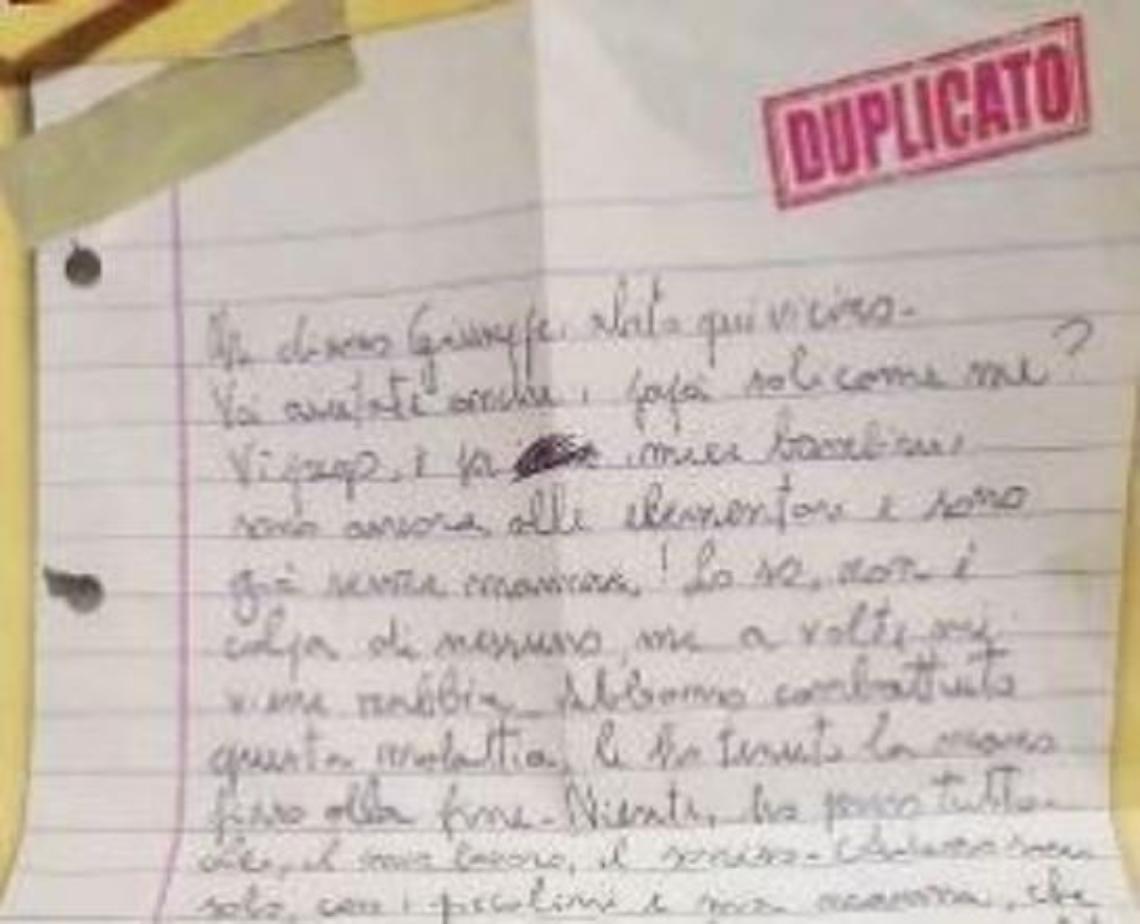 DUPLICATO
Mi chiamo Giuseppe, abito qui vicino.
Voi aiutate anche i papà soli come me?
Vi prego, i miei bambini
sono ancora alle elementari e sono
già senza mamma! Lo so, non è
colpa di nessuno, ma a volte mi
viene rabbia. Abbiamo combattuto
questa malattia, le ho tenuto la mano
fino alla fine. Niente, ho perso tutto.
Lei, il mio lavoro, il sorriso.
solo, con i piccolini e mia mamma, che